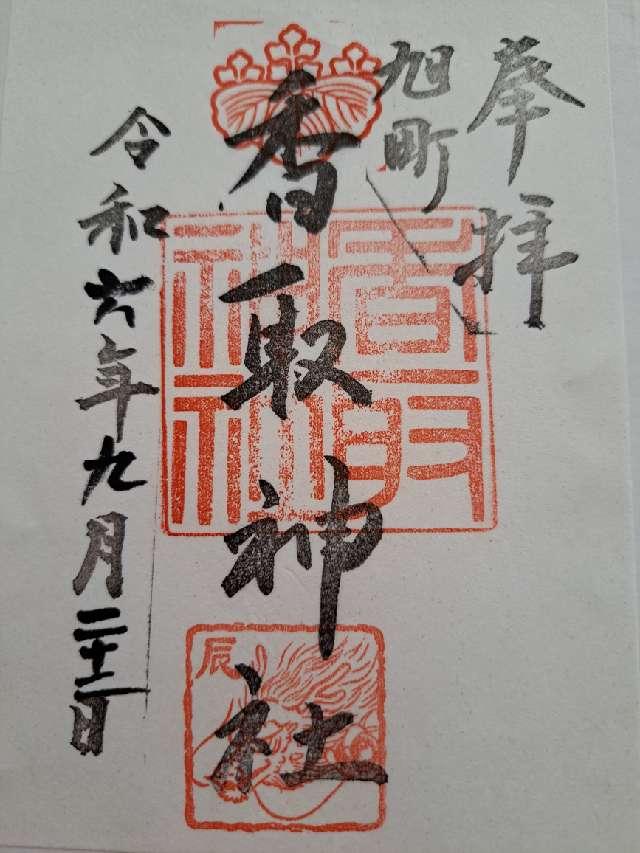 奉拝
旭町
香取神社
令和六年九月二十二日
香取
神社
辰